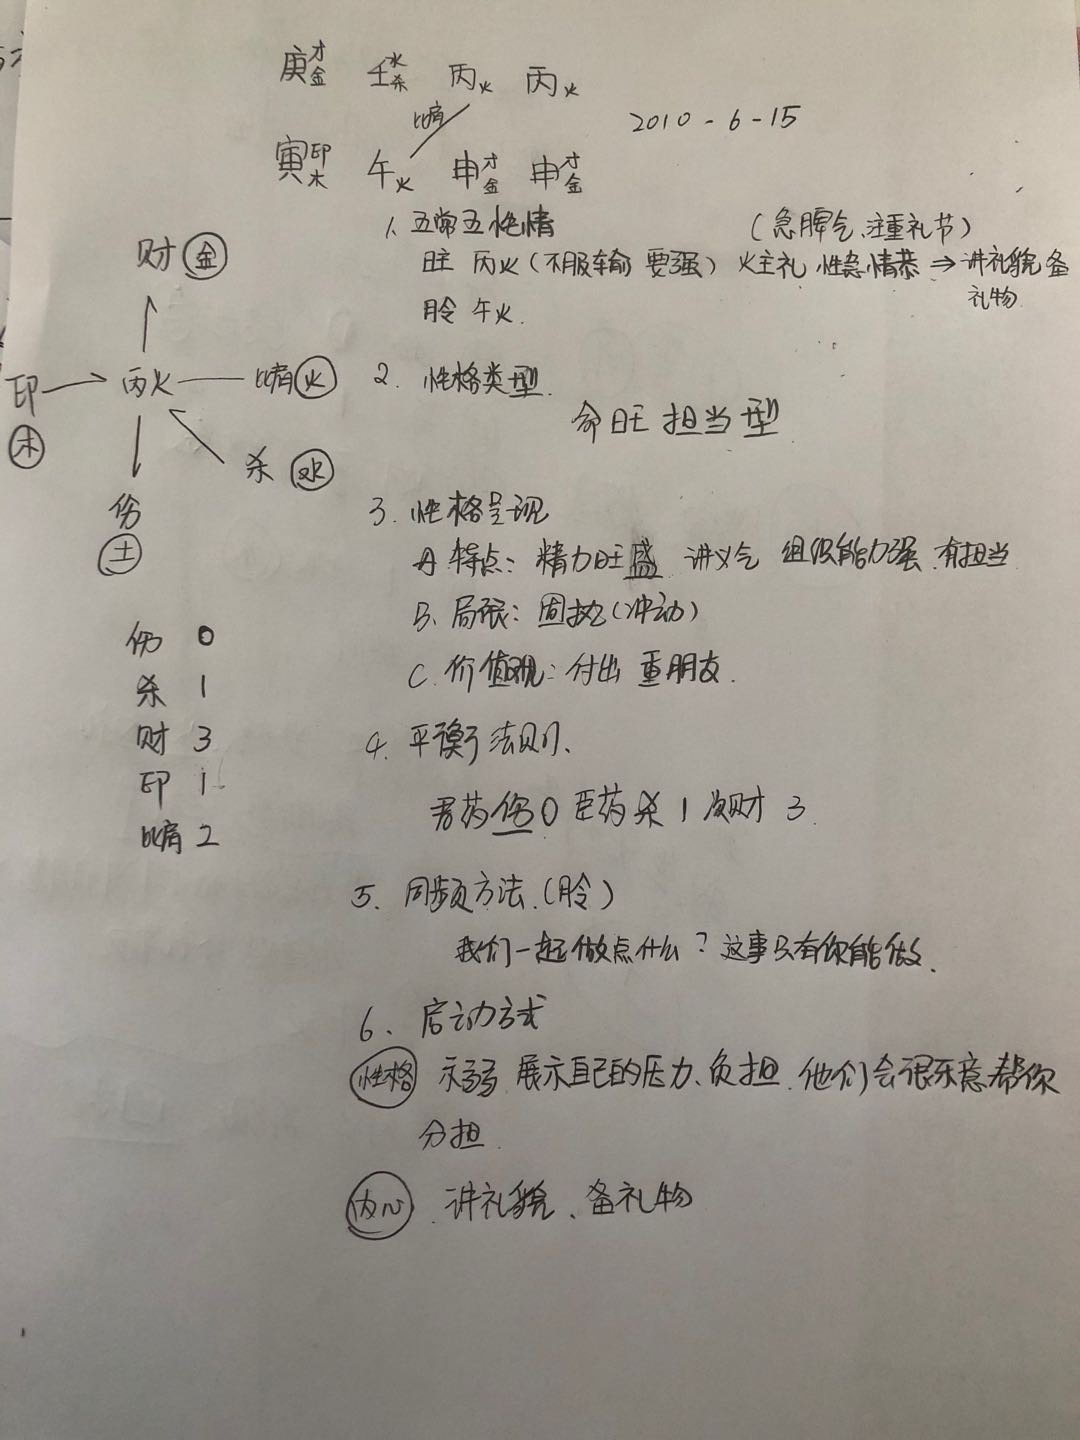 庚才金 壬水杀 丙火 丙火
比肩
2010-6-15
寅印木 午火 申才金 申才金
1、五常五性情 (急脾气、注重礼节)
日主 丙火(不服输 要强) 火主礼 性急情恭⇒讲礼貌备
礼物
月令 午火.
财 金
印 → 丙火 — 比肩 火
木
杀 水
伤
土
2. 性格类型
命旺 担当型
3. 性格呈现
A 特点: 精力旺盛 讲义气 组织能力强 有担当
B. 局限: 固执(冲动)
C. 价值观: 付出 重朋友.
伤 0
杀 1
财 3
印 1
比肩 2
4. 平衡法则、
君药伤0 臣药杀1 次财3.
5. 同频方法.(月令)
我们一起做点什么? 这事只有你能做.
6、启动方式
性格 示弱 展示自己的压力、负担.他们会很乐意帮你
分担.
内心 讲礼貌、备礼物